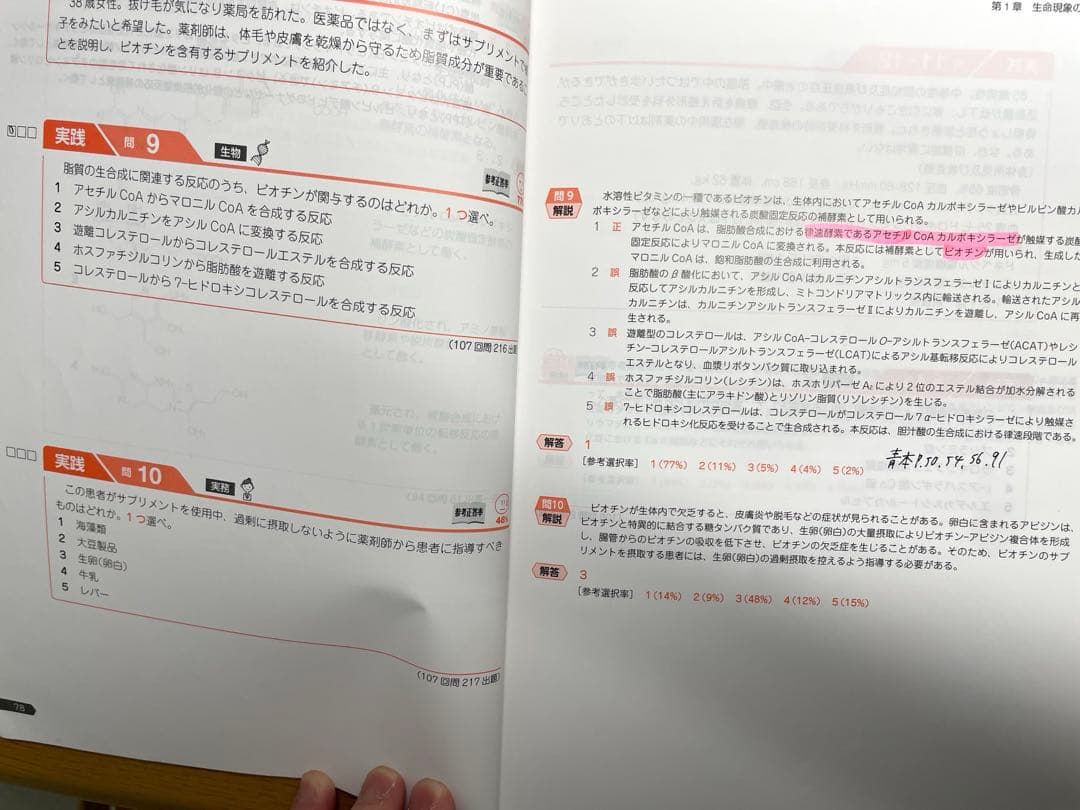 38歳女性。抜け毛が気になり薬局を訪れた。医薬品ではなく、まずはサプリメントで
子をみたいと希望した。薬剤師は、体毛や皮膚を乾燥から守るため脂質成分が重要である
とを説明し、ビオチンを含有するサプリメントを紹介した。
実践 問 9 生物
参考正答率
脂質の生合成に関連する反応のうち、ビオチンが関与するのはどれか。1つ選べ。
1 アセチル CoA からマロニル CoA を合成する反応
2 アシルカルニチンをアシル CoA に変換する反応
3 遊離コレステロールからコレステロールエステルを合成する反応
4 ホスファチジルコリンから脂肪酸を遊離する反応
5 コレステロールから 7-ヒドロキシコレステロールを合成する反応
(107 回問 216 出題
実践 問 10 実務
参考正答率
48%
この患者がサプリメントを使用中、過剰に摂取しないように薬剤師から患者に指導すべき
ものはどれか。1つ選べ。
1 海藻類
2 大豆製品
3 生卵(卵白)
4 牛乳
5 レバー
(107 回問 217 出題)
78
第1章 生命現象の
問9
解説
水溶性ビタミンの一種であるビオチンは、生体内においてアセチル CoA カルボキシラーゼやピルビン酸カル
ボキシラーゼなどにより触媒される炭酸固定反応の補酵素として用いられる。
1 正 アセチル CoA は、脂肪酸合成における律速酵素であるアセチル CoA カルボキシラーゼが触媒する炭酸
固定反応によりマロニル CoA に変換される。本反応には補酵素としてビオチンが用いられ、生成した
マロニル CoA は、飽和脂肪酸の生合成に利用される。
2 誤 脂肪酸のβ酸化において、アシル CoA はカルニチンアシルトランスフェラーゼⅠによりカルニチンと
反応してアシルカルニチンを形成し、ミトコンドリアマトリックス内に輸送される。輸送されたアシル
カルニチンは、カルニチンアシルトランスフェラーゼⅡによりカルニチンを遊離し、アシル CoA に再
生される。
3 誤 遊離型のコレステロールは、アシル CoA-コレステロール O-アシルトランスフェラーゼ(ACAT)やレシ
チン-コレステロールアシルトランスフェラーゼ(LCAT)によるアシル基転移反応によりコレステロール
エステルとなり、血漿リポタンパク質に取り込まれる。
4 誤 ホスファチジルコリン(レシチン)は、ホスホリパーゼ A₂ により 2 位のエステル結合が加水分解される
ことで脂肪酸(主にアラキドン酸)とリゾリン脂質(リゾレシチン)を生じる。
5 誤 7-ヒドロキシコレステロールは、コレステロールがコレステロール 7α-ヒドロキシラーゼにより触媒さ
れるヒドロキシ化反応を受けることで生成される。本反応は、胆汁酸の生合成における律速段階である。
解答 1
[参考選択率] 1(77%) 2(11%) 3(5%) 4(4%) 5(2%)
青本P.50.54.56.91
問10
解説
ビオチンが生体内で欠乏すると、皮膚炎や脱毛などの症状が見られることがある。卵白に含まれるアビジンは、
ビオチンと特異的に結合する糖タンパク質であり、生卵(卵白)の大量摂取によりビオチン-アビジン複合体を形成
し、腸管からのビオチンの吸収を低下させ、ビオチンの欠乏症を生じることがある。そのため、ビオチンのサプ
リメントを摂取する患者には、生卵(卵白)の過剰摂取を控えるよう指導する必要がある。
解答 3
[参考選択率] 1(14%) 2(9%) 3(48%) 4(12%) 5(15%)